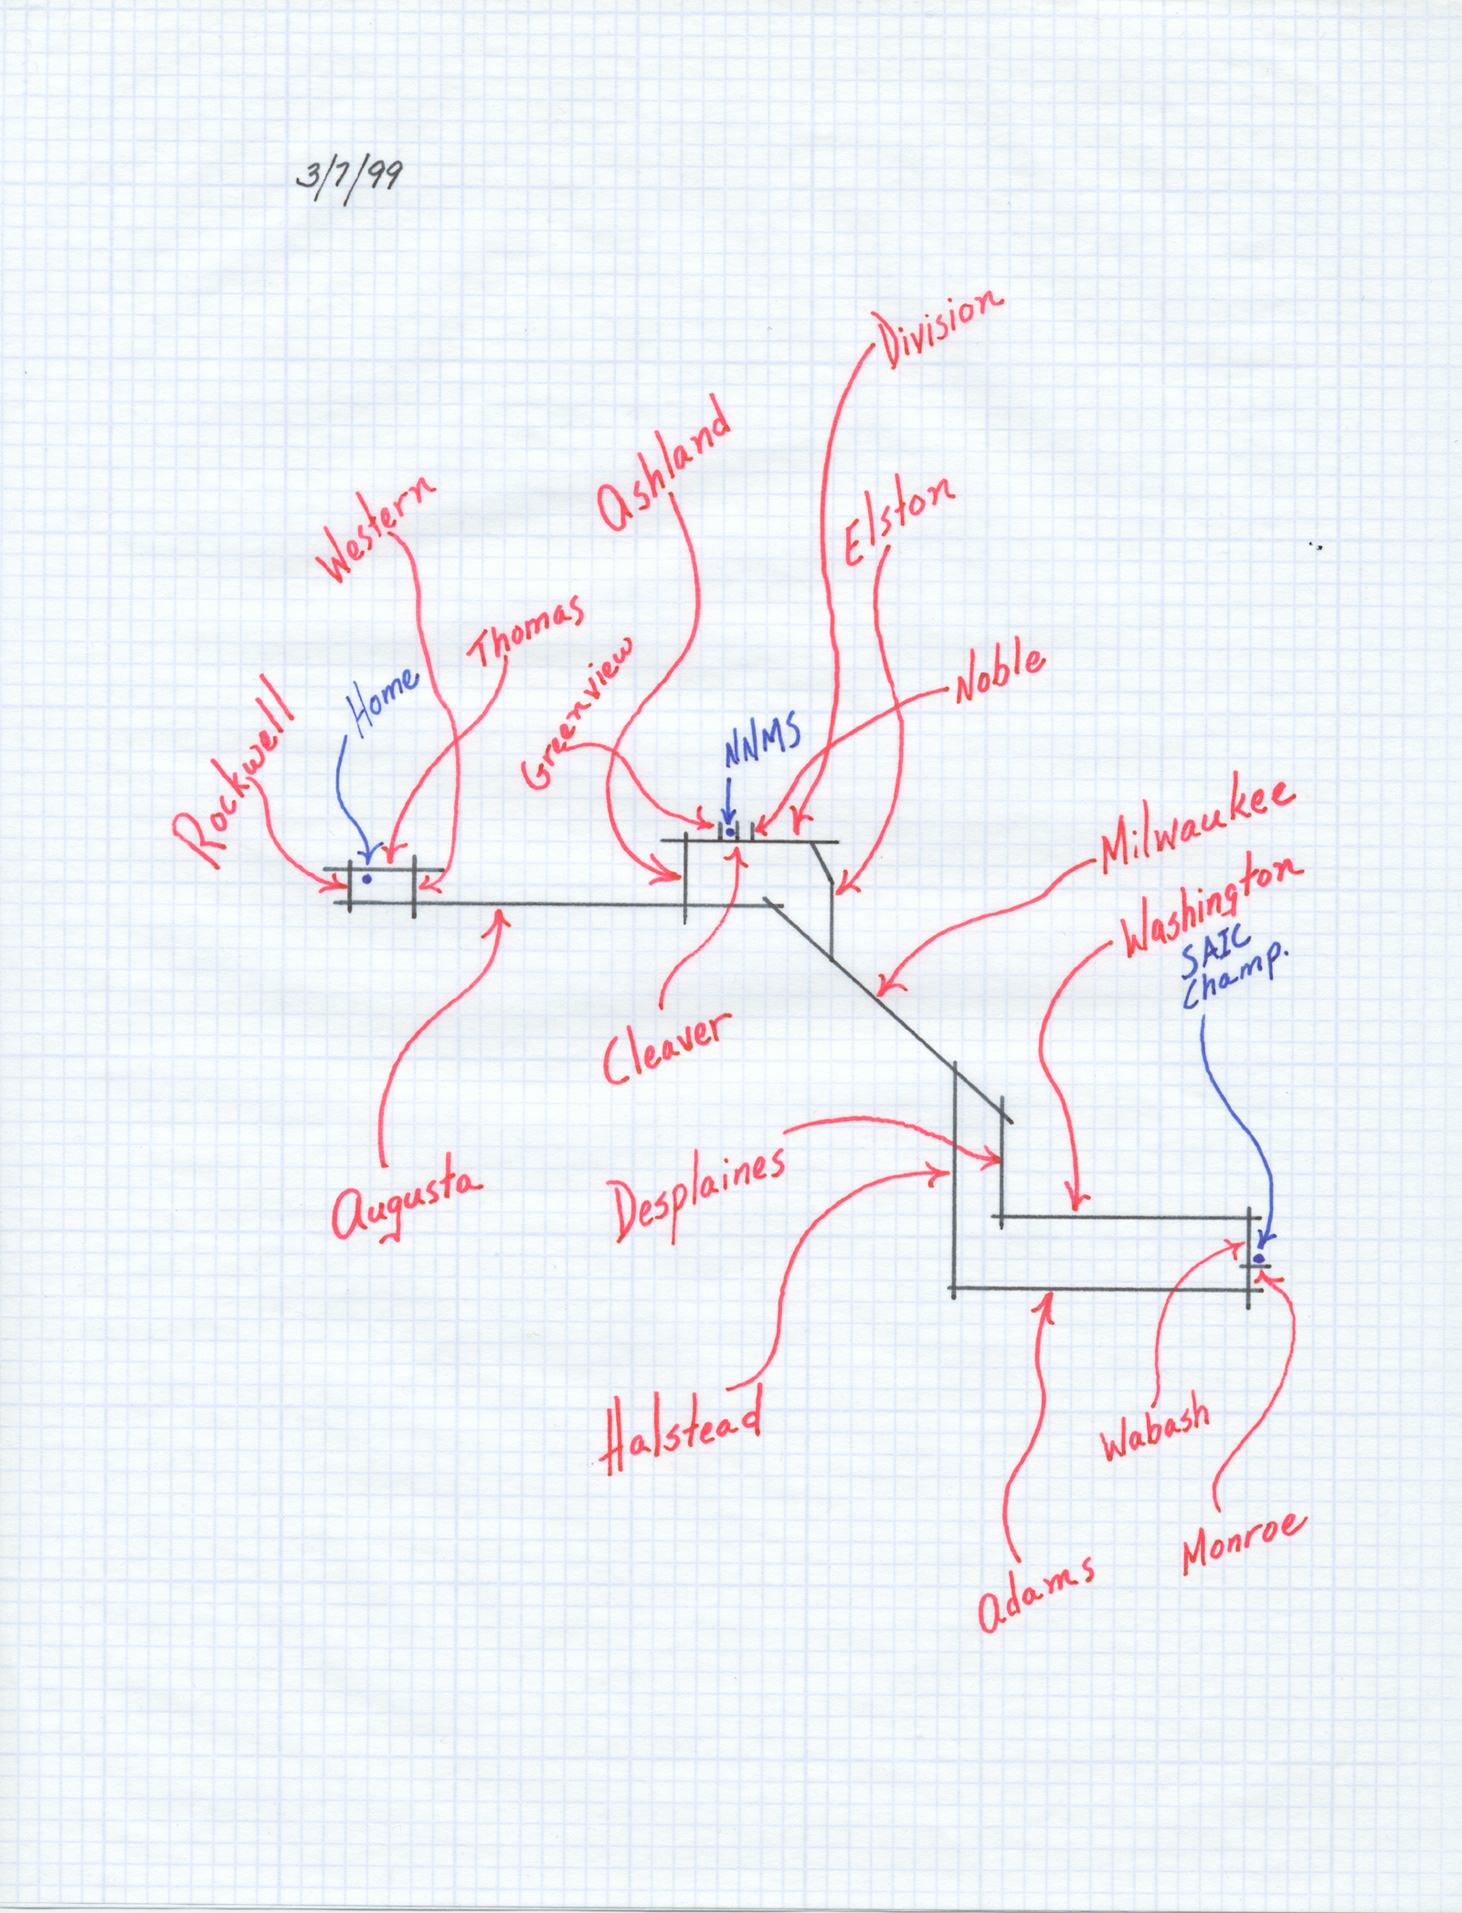 3/7/99
Division
Ashland
Western
Elston
Thomas
Greenview
Noble
Home
Rockwell
NNMS
Milwaukee
Washington
SAIC
Champ.
Cleaver
Augusta
Desplaines
Halstead
Wabash
Monroe
Adams